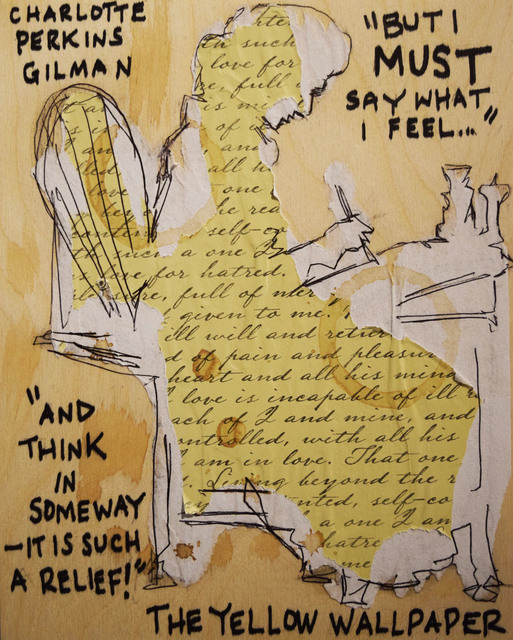 CHARLOTTE
PERKINS
GILMAN
"BUT I
MUST
SAY WHAT
I FEEL..."
such
love for
full
is
of a
I am and
all h
love one
he rea
self-co
such a one I
love for hatred.
full of mer
given to me.
ill will and retur
d of pain and pleasur
heart and all his ming
love is incapable of ill
ach of I and mine, and
ontrolled, with all his
I am in love. That one
Living beyond the r
nted, self-co
a one I am
hatre
me
"AND
THINK
IN
SOMEWAY
-IT IS SUCH
A RELIEF!"
THE YELLOW WALLPAPER